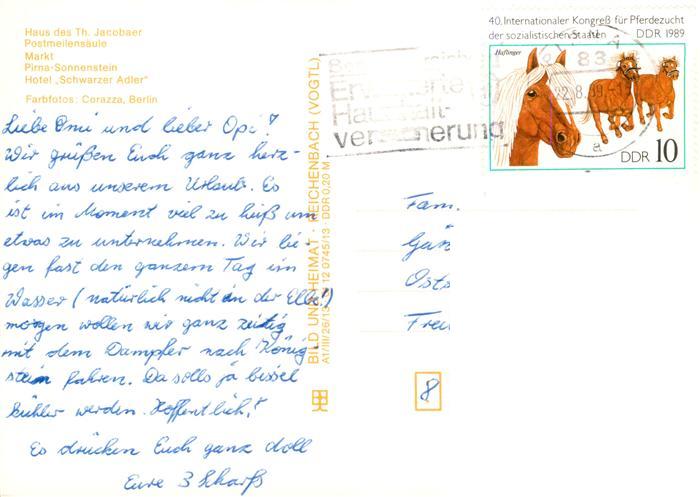 Haus des Th. Jacobaer
Postmeilensäule
Markt
Pirna-Sonnenstein
Hotel „Schwarzer Adler"
Farbfotos: Corazza, Berlin
Liebe Omi und lieber Opi!
Wir grüßen Euch ganz herz-
lich aus unserem Urlaub. Es
ist im Moment viel zu heiß um
etwas zu unternehmen. Wir lie-
gen fast den ganzem Tag im
Wasser (natürlich nicht in der Elbe!)
morgen wollen wir ganz zeitig
mit dem Dampfer nach König
stein fahren. Da solls ja bissel
kühler werden. Hoffentlich!
Es drücken Euch ganz doll
Eure 3 Scharfs
BILD UND HEIMAT · REICHENBACH (VOGTL)
A1/III/26/13 12 0745/13 DDR 0,20 M
40. Internationaler Kongreß für Pferdezucht
der sozialistischen Staaten DDR 1989
Haflinger
DDR 10
83
22.8.89
a
Erweiterte
Haushalt-
versicherung
Fam.
Gän
Osts
Frei
8